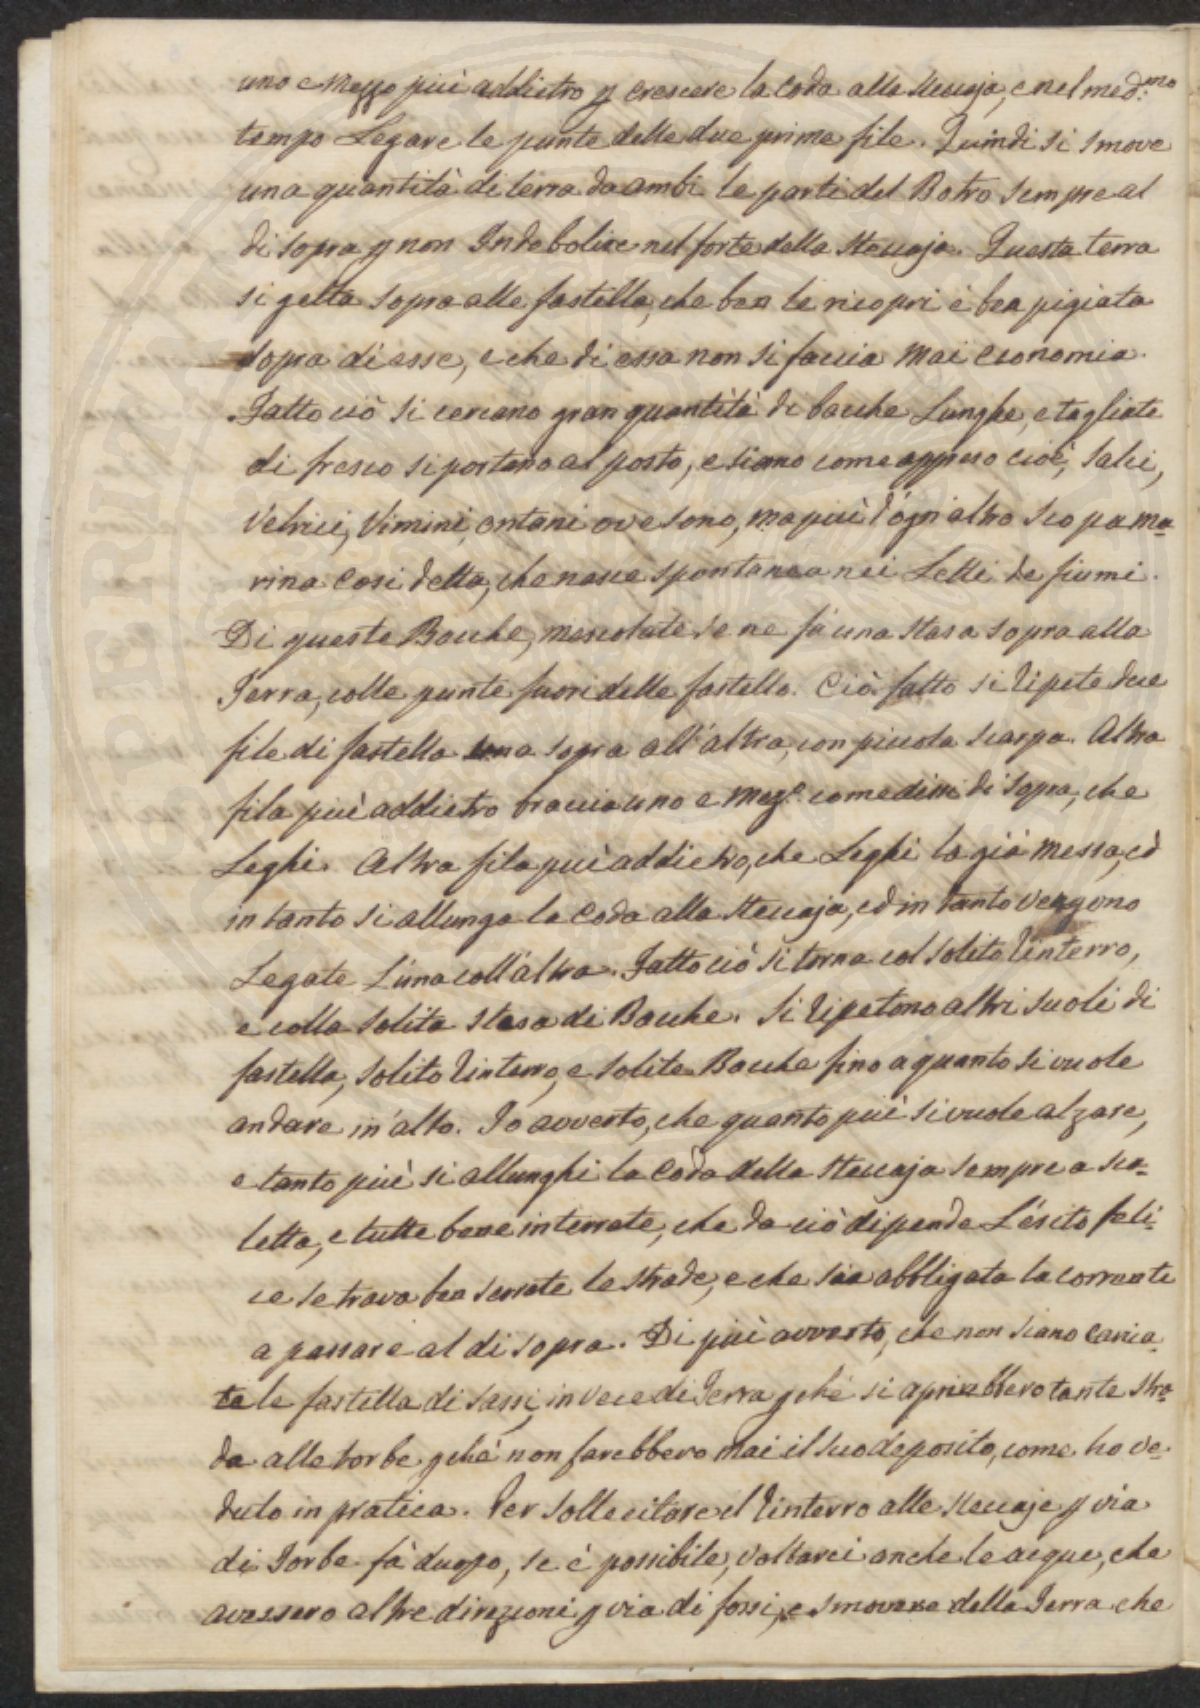 uno e mezzo più addietro p crescere la coda alla Steccaja, e nel med:mo
tempo Legare le punte delle due prime file. Quindi si smove
una quantità di terra da ambi le parti del Botro sempre al
di sopra p non Indebolire nel forte della Steccaja. Questa terra
si getta sopra alle fastella, che ben le ricopri è ben pigiata
sopra di esse, e che di essa non si faccia mai economia.
Fatto ciò si cercano gran quantità di bacche Lunghe, e tagliate
di fresco si portano al posto, e siano come appreso cioè, Salci,
Vetrici, Vimini, ontani ove sono, ma più d'ogn altro scopa ma=
rina Così detta, che nasce spontanea nei Letti de fiumi.
Di queste Bacche, mescolate se ne fà una stasa sopra alla
Terra, colle punte fuori delle fastella. Ciò fatto si ripete due
file di fastella una sopra all'altra, con piccola scarpa. Altra
fila più addietro braccia uno e mezo come dissi di sopra, che
Leghi. Altra fila più addietro, che Leghi la già messa, ed
in tanto si allunga la Coda alla Steccaja, ed in tanto vengono
Legate L'una coll'altra. Fatto ciò si torna col solito rinterro,
e colla solita stasa di Bacche. Si ripetono altri suoli di
fastella, solito rinterro, e solite Bacche fino a quanto si vuole
andare in'alto. Io avverto, che quanto più si vuole alzare,
e tanto più si allunghi la Coda della Steccaja sempre a sca=
letta, e tutte bene interrate, che da ciò dipende L'ésito feli=
ce se trova ben serrate le strade, e che sia abbligata la corrente
a passare al di sopra. Di più avverto, che non siano carica=
te le fastella di sassi, in vece di Terra pchè si aprirebbero tante stra=
da alle torbe pchè non farebbero mai il suo deposito, come ho ve=
duto in pratica. Per sollecitare il rinterro alle steccaje p via
di Torbe fà duopo, se è possibile, voltarci anche le acque, che
avessero altre direzioni p via di fossi, e smovere della Terra che